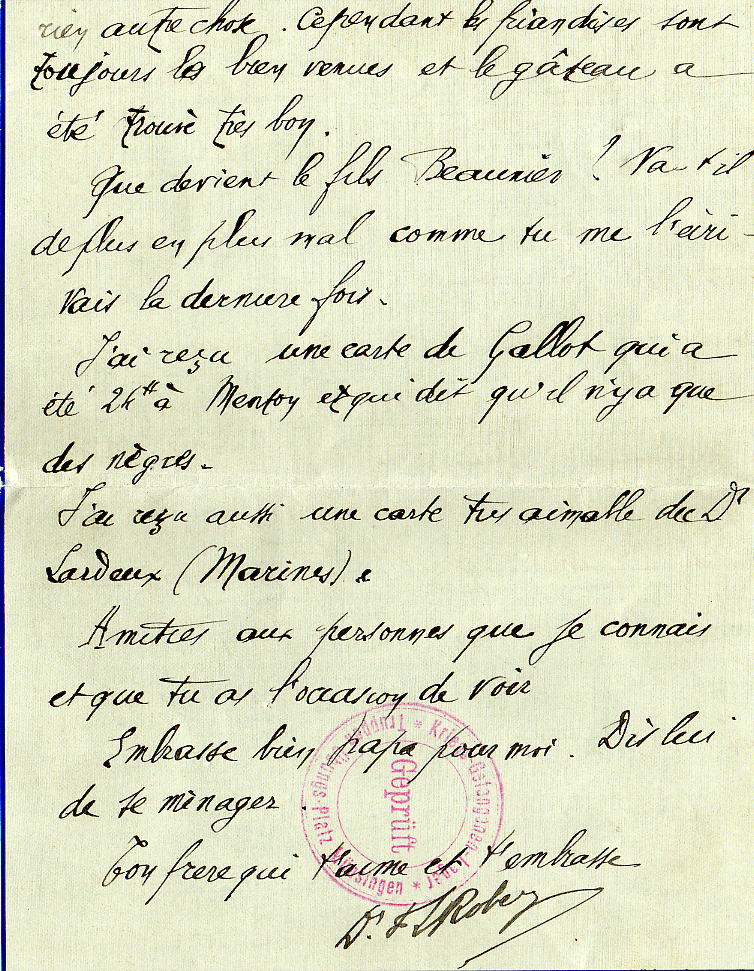 rien autre chose. Cependant les friandises sont
toujours les bien venues et le gâteau a
été trouvé très bon.
Que devient le fils Beaunier ? Va-t-il
de plus en plus mal comme tu me l'écri-
vais la dernière fois.
J'ai reçu une carte de Gallot qui a
été à et qui dit qu'il n'y a que
des nègres.
J'ai reçu aussi une carte très aimable du Dr
Lardeux (Marines).
Amitiés aux personnes que je connais
et que tu as l'occasion de voir
Embrasse bien papa pour moi. Dis lui
de se ménager.
Ton frère qui t'aime et t'embrasse
Dr.
Kriegs-Gefangenen-Lager * Truppen-Übungs-Platz Münsingen *
Geprüft